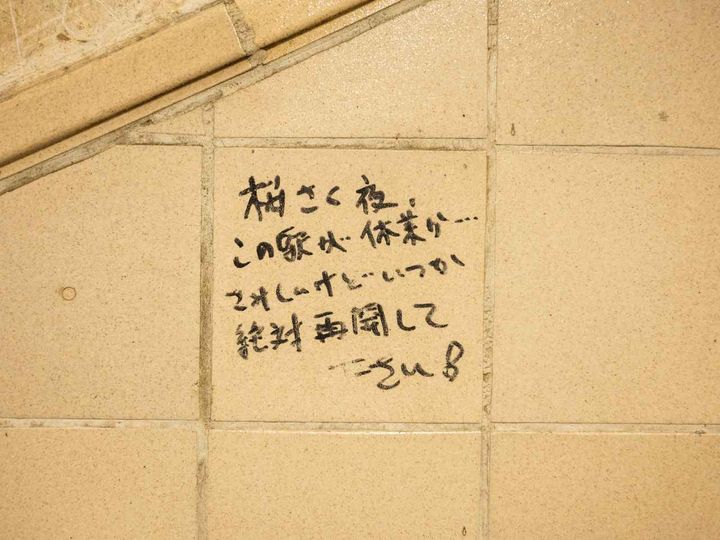 桜さく夜.
この駅が休業か…
さみしいけどいつか
絶対再開して
下さい